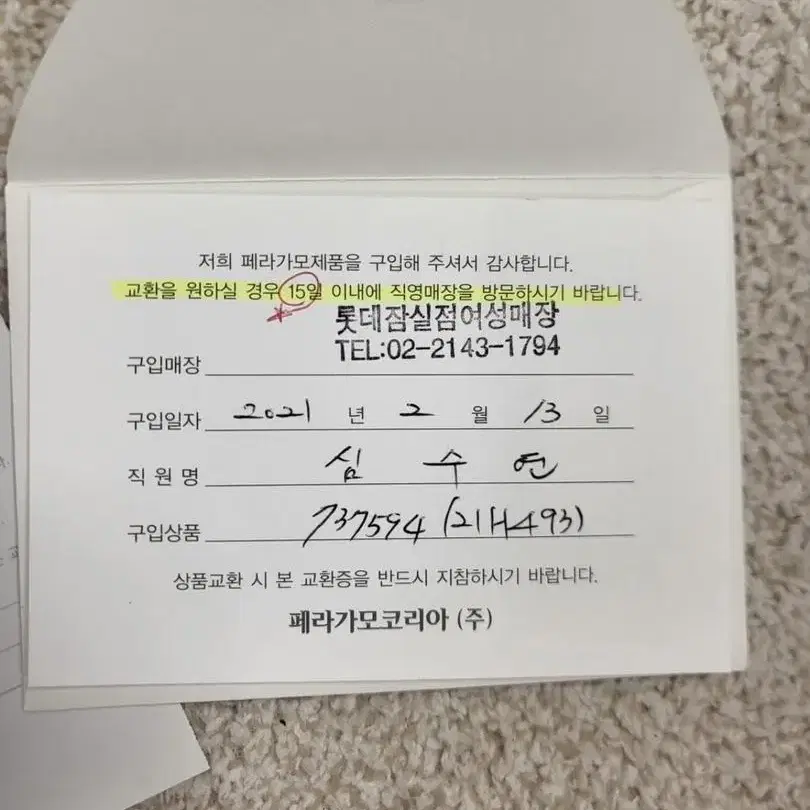 저희 페라가모제품을 구입해 주셔서 감사합니다.
교환을 원하실 경우 15일 이내에 직영매장을 방문하시기 바랍니다.
롯데잠실점여성매장
TEL:02-2143-1794
구입매장
구입일자 2021 년 2 월 13 일
직원명 심수연
구입상품 737594 (21H493)
상품교환 시 본 교환증을 반드시 지참하시기 바랍니다.
페라가모코리아 (주)